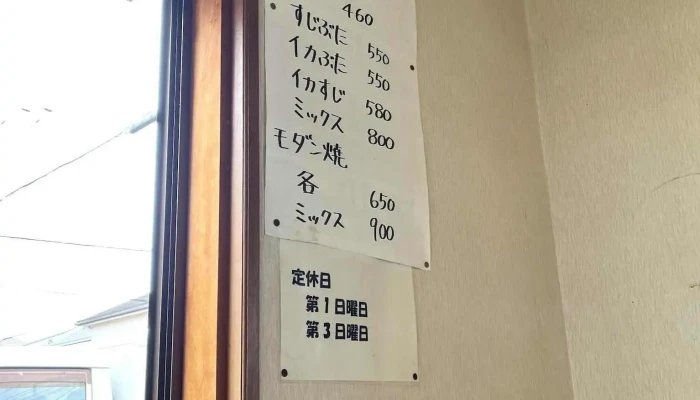 460
すじぶた 550
イカぶた 550
イカすじ 580
ミックス 800
モダン焼
各 650
ミックス 900
定休日
第1日曜日
第3日曜日